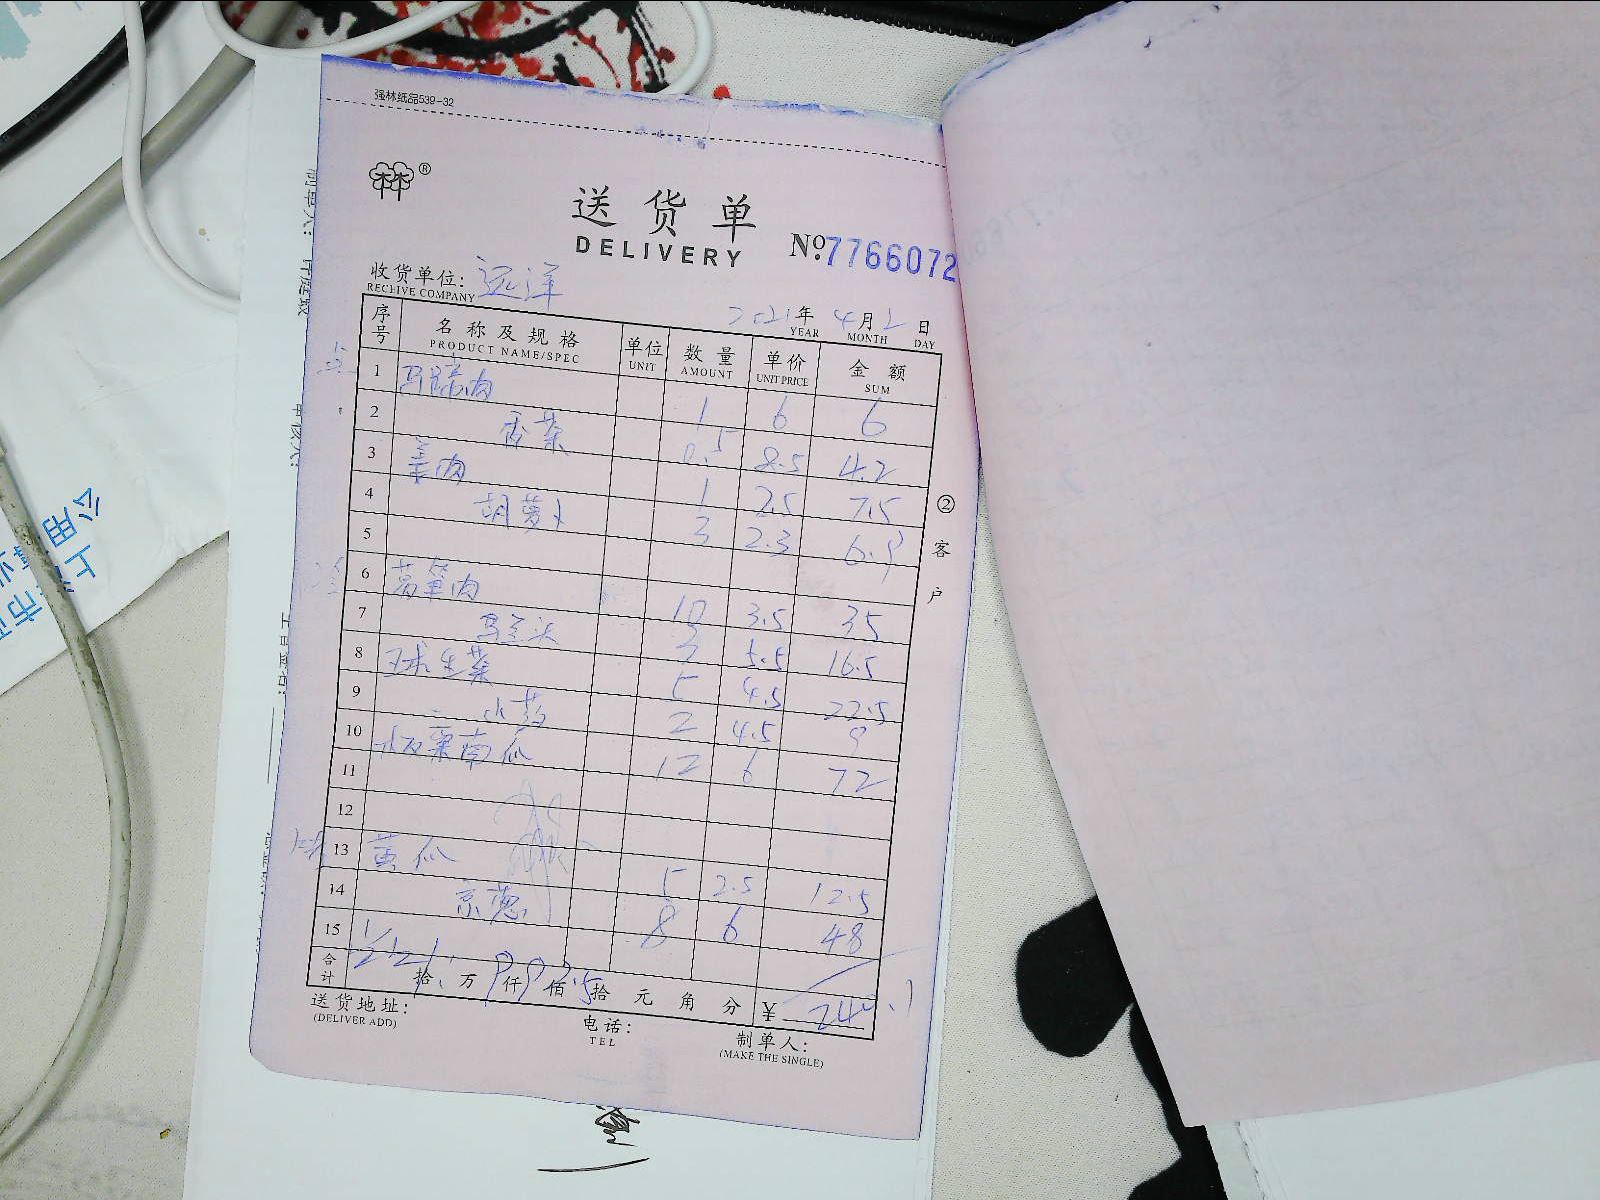 强林纸品539-32
林®
送货单
DELIVERY
№:7766072
收货单位:远洋
RECHIVE COMPANY
2021年4月2日
YEAR MONTH DAY
序号 名称及规格 单位 数量 单价 金额
PRODUCT NAME/SPEC UNIT AMOUNT UNIT PRICE SUM
1 马蹄肉 1 6 6
2 香菜 0.5 8.5 4.2
3 姜肉 1 7.5 7.5
4 胡萝卜 3 2.3 6.9
5
6 莴笋肉 10 3.5 35
7 马兰头 3 5.5 16.5
8 球生菜 5 4.5 22.5
9 山药 2 4.5 9
10 板栗南瓜 12 6 72
11
12
13 黄瓜 5 2.5 12.5
14 京葱 8 6 48
15
合计 拾 万 仟 佰 拾 元 角 分 ¥
送货地址:
(DELIVER ADD)
电话:
TEL
制单人:
(MAKE THE SINGLE)
②客户
制单人: